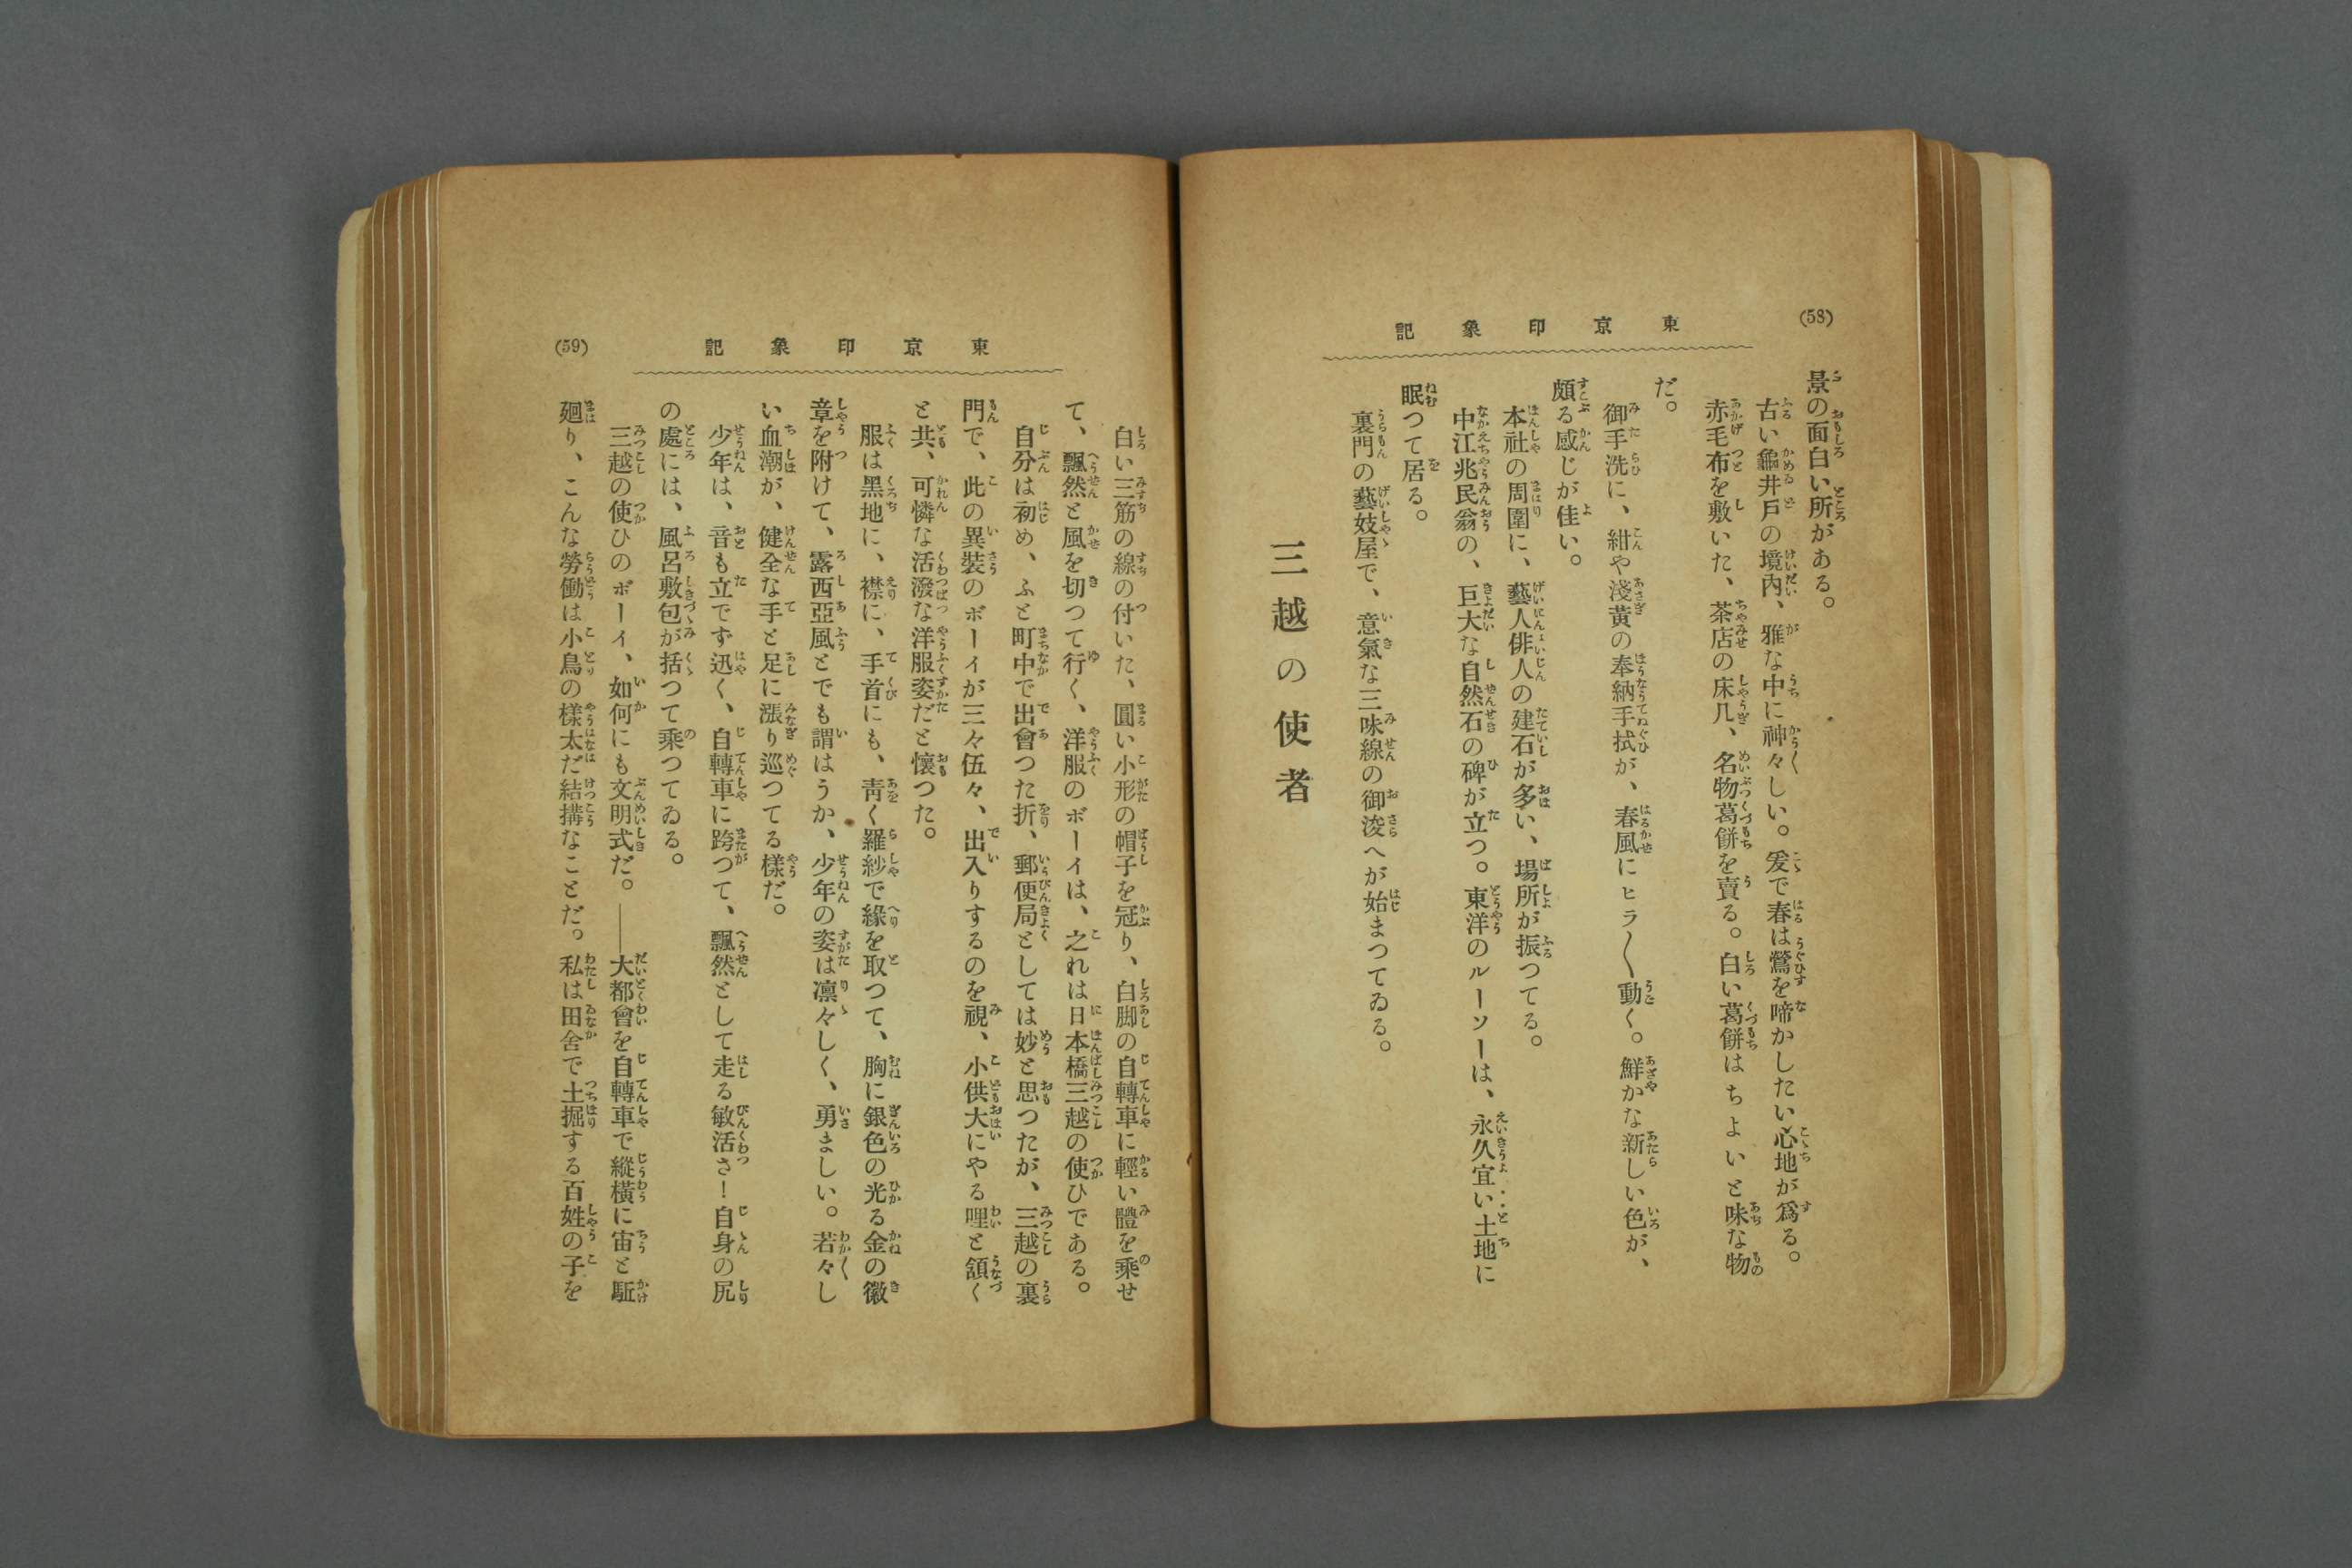 (58)
東京印象記
景の面白い所がある。
古い龜井戸の境内、雅な中に神々しい。爰で春は鶯を啼かしたい心地が爲る。
赤毛布を敷いた、茶店の床几、名物葛餅を賣る。白い葛餅はちよいと味な物
だ。
御手洗に、紺や淺黄の奉納手拭が、春風にヒラ〱動く。鮮かな新しい色が、
頗る感じが佳い。
本社の周圍に、藝人俳人の建石が多い、場所が振つてる。
中江兆民翁の、巨大な自然石の碑が立つ。東洋のルーソーは、永久宜い土地に
眠つて居る。
裏門の藝妓屋で、意氣な三味線の御浚へが始まつてゐる。
三越の使者
(59)
東京印象記
白い三筋の線の付いた、圓い小形の帽子を冠り、白脚の自轉車に輕い體を乘せ
て、飄然と風を切つて行く、洋服のボーイは、之れは日本橋三越の使ひである。
自分は初め、ふと町中で出會つた折、郵便局としては妙と思つたが、三越の裏
門で、此の異裝のボーイが三々伍々、出入りするのを視、小供大にやる哩と頷く
と共、可憐な活潑な洋服姿だと懷つた。
服は黑地に、襟に、手首にも、靑く羅紗で緣を取つて、胸に銀色の光る金の徽
章を附けて、露西亞風とでも謂はうか、少年の姿は凛々しく、勇ましい。若々し
い血潮が、健全な手と足に漲り巡つてる樣だ。
少年は、音も立てず迅く、自轉車に跨つて、飄然として走る敏活さ！自身の尻
の處には、風呂敷包が括つて乘つてゐる。
三越の使ひのボーイ、如何にも文明式だ。――大都會を自轉車で縱橫に宙と駈
廻り、こんな勞働は小鳥の樣太だ結搆なことだ。私は田舍で土掘する百姓の子を